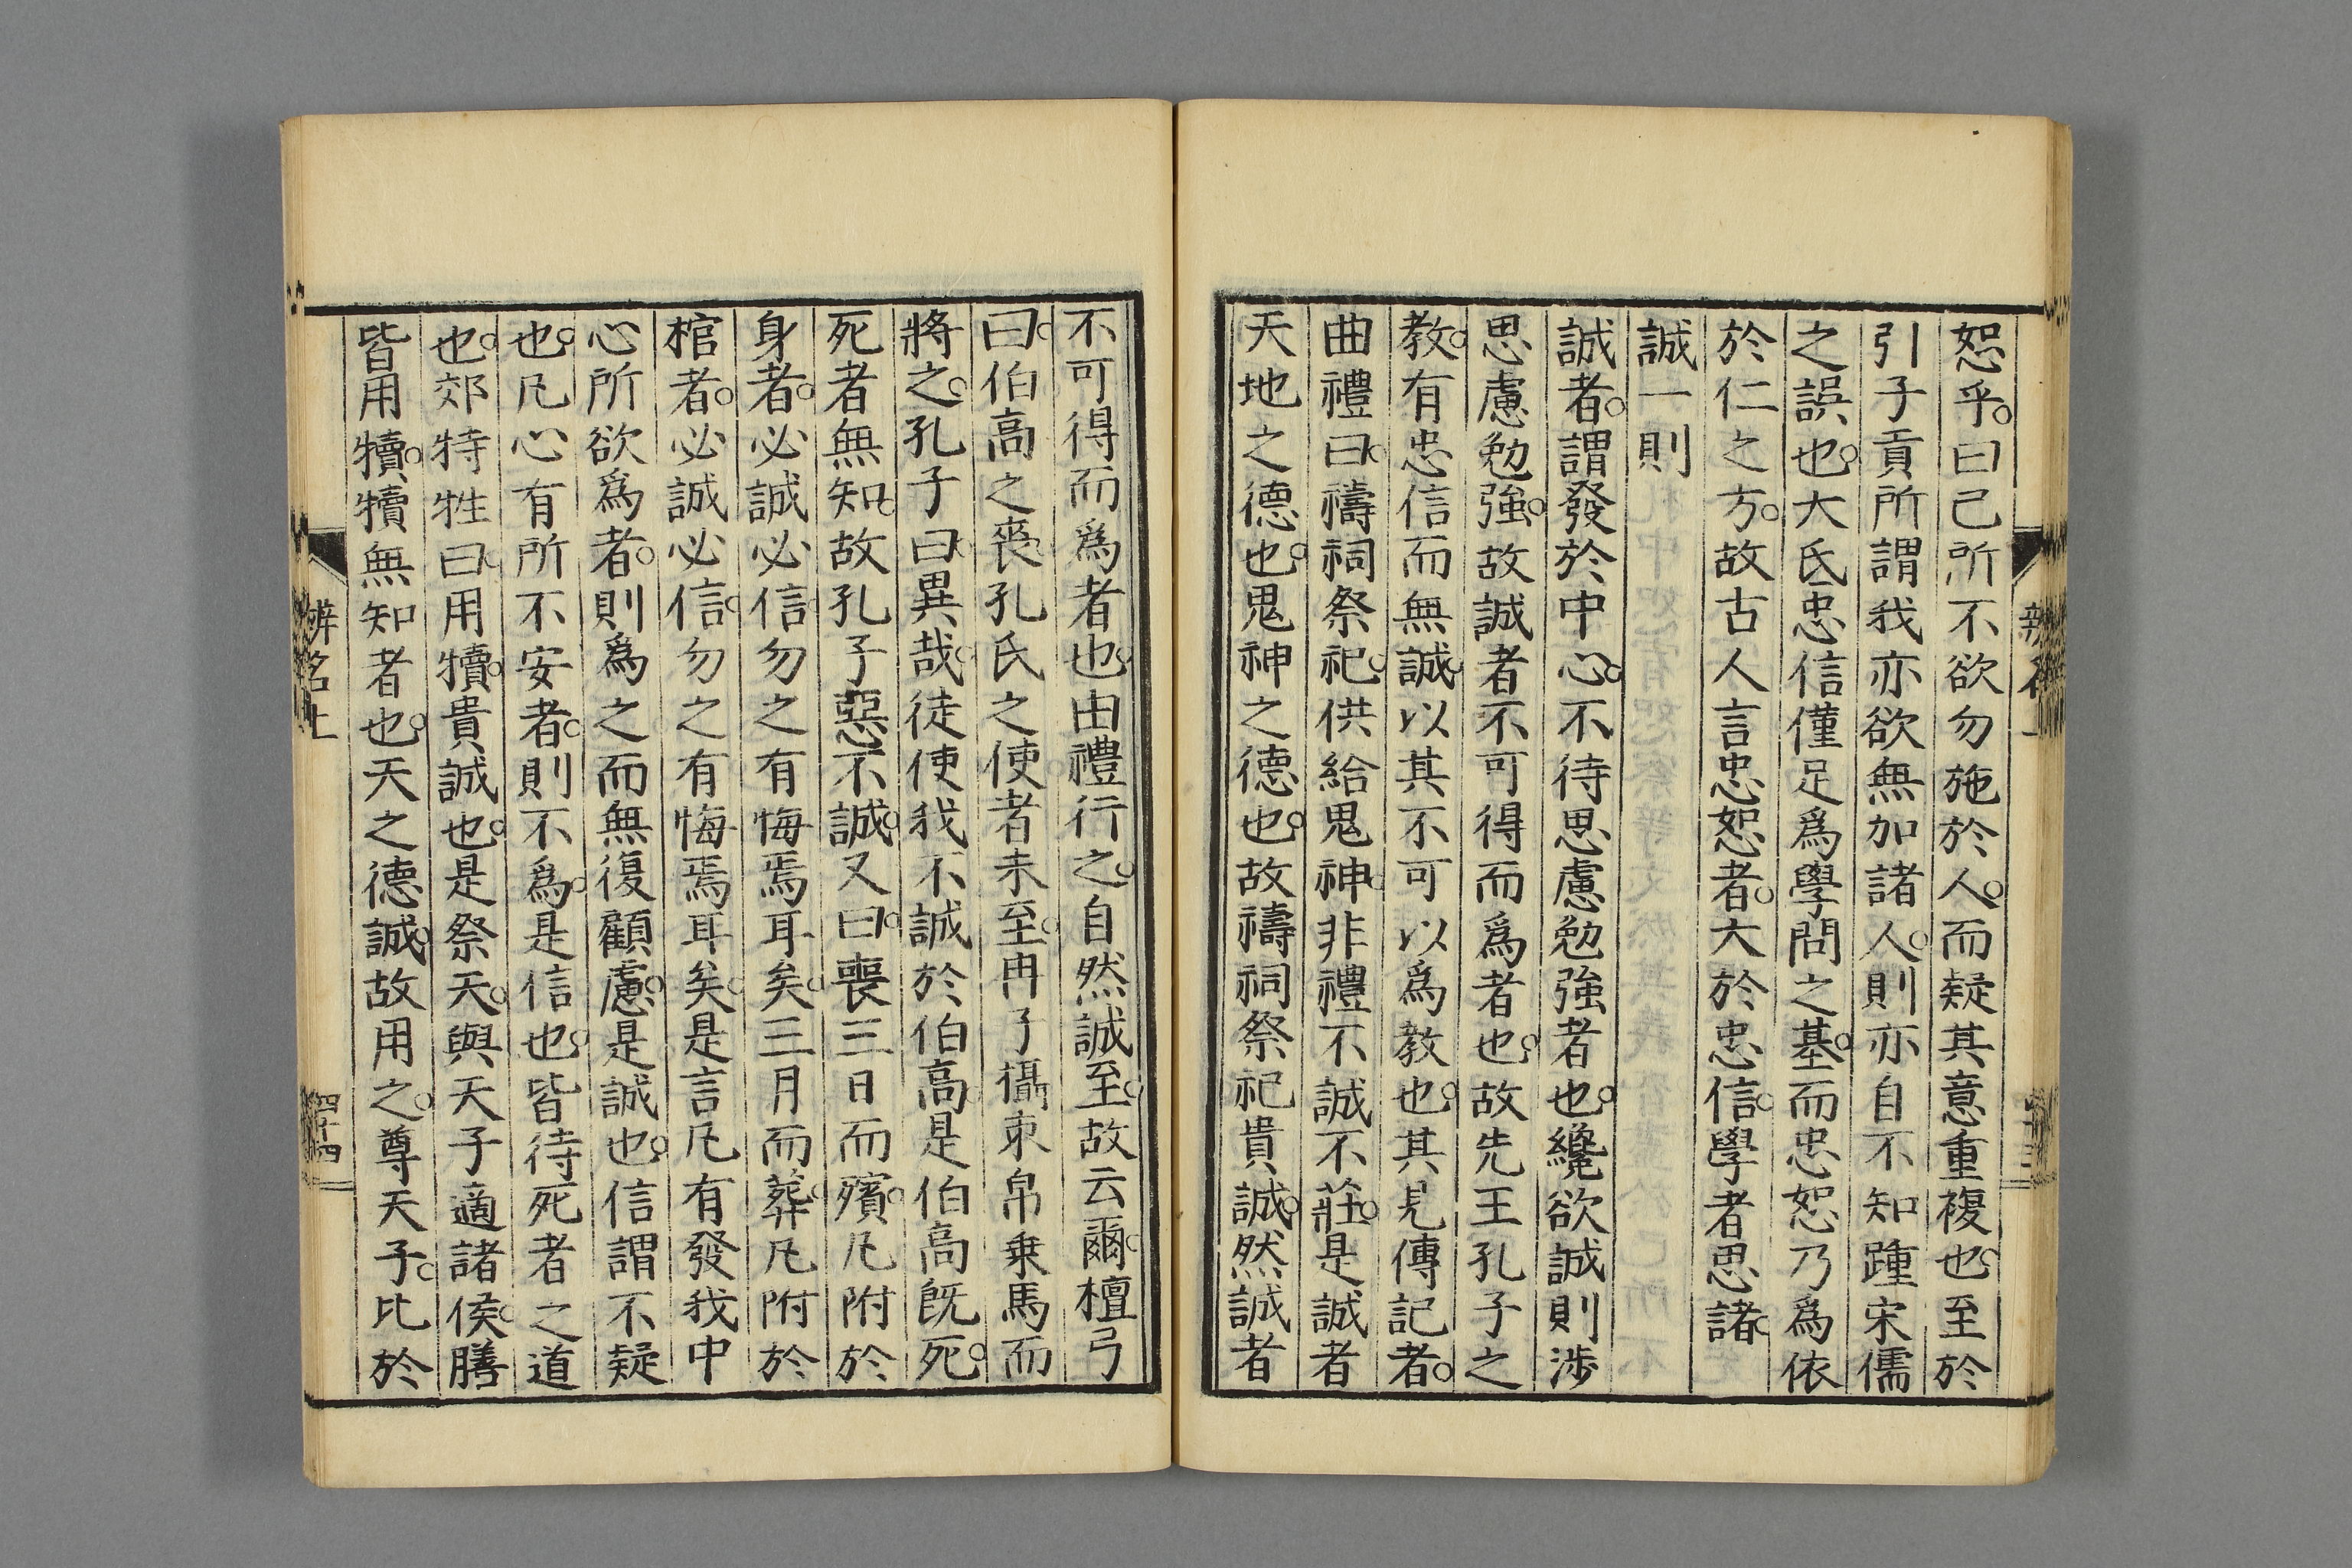 恕乎。曰己所不欲勿施於人。而疑其意重複也。至於
引子貢所謂我亦欲無加諸人。則亦自不知踵宋儒
之誤也。大氐忠信僅足爲學問之基。而忠恕乃爲依
於仁之方。故古人言忠恕者。大於忠信。學者思諸。
誠一則
誠者。謂發於中心。不待思慮勉強者也。纔欲誠則涉
思慮勉強。故誠者不可得而爲者也。故先王孔子之
教。有忠信而無誠。以其不可以爲教也。其見傳記者。
曲禮曰。禱祠祭祀。供給鬼神。非禮不誠不莊。是誠者
天地之德也。鬼神之德也。故禱祠祭祀貴誠。然誠者
不可得而爲者也。由禮行之。自然誠至。故云爾。檀弓
曰。伯高之喪。孔氏之使者未至。冉子攝束帛乗馬而
將之。孔子曰。異哉。徒使我不誠於伯高。是伯高既死。
死者無知。故孔子惡不誠。又曰。喪三日而殯。凡附於
身者。必誠必信。勿之有悔焉耳矣。三月而葬。凡附於
棺者。必誠必信。勿之有悔焉耳矣。是言凡有發我中
心所欲爲者。則爲之而無復顧慮。是誠也。信謂不疑
也。凡心有所不安者。則不爲。是信也。皆待死者之道
也。郊特牲曰。用犢。貴誠也。是祭天。與天子適諸侯。膳
皆用犢。犢無知者也。天之德誠。故用之。尊天子。比於
辨名上
四十四